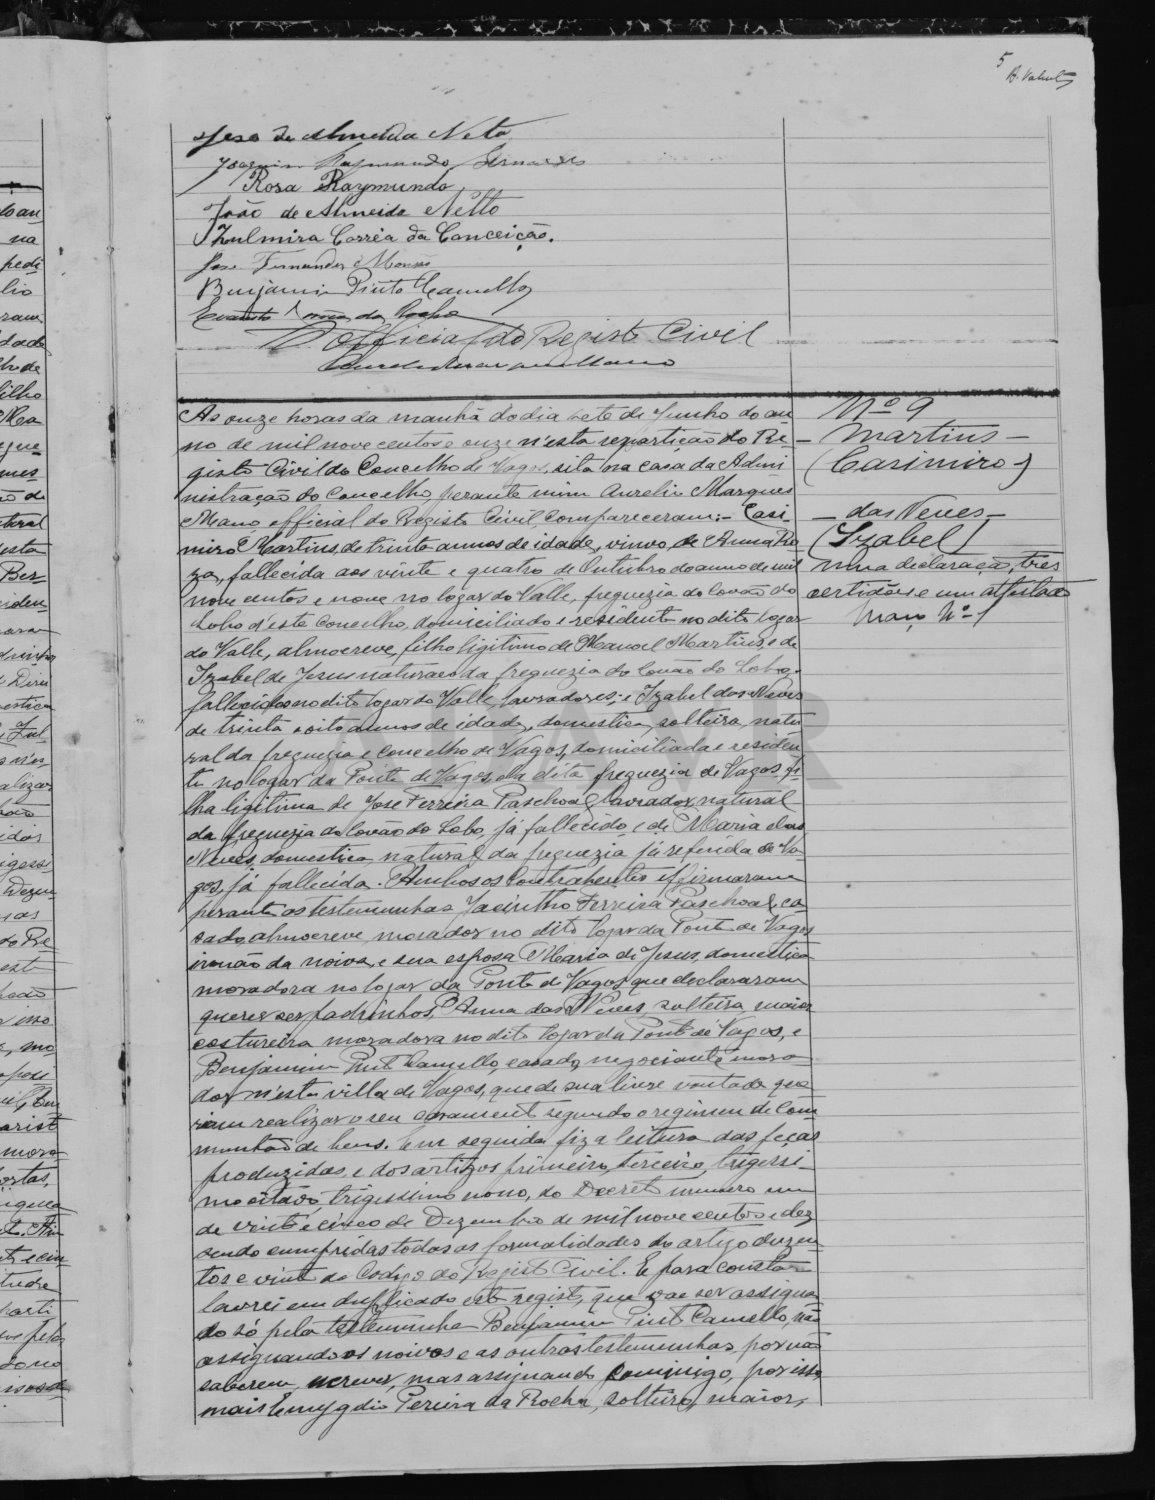 5
José de Almeida Neto
Joaquim Raymundo Fernandes
Rosa Raymundo
João de Almeida Netto
Zulmira Corrêa da Conceição.
José Fernandes
Benjamin Pinto Camello
da Rocha
O official do Registo Civil
Nº 9
Martins
(Casimiro)
das Neves
(Izabel)
uma declaração, tres
certidões e um attestado
Março Nº 1
As onze horas da manhã do dia sete de Junho do an
no de mil nove centos e onze n'esta repartição do Re-
gisto Civil do Concelho de Vagos, sita na casa da Admi
nistração do Concelho, perante mim Aurelio Marques
Mano official do Registo Civil, compareceram:- Casi-
miro Martins, de trinta annos de idade, viuvo de Anna Ro
za, fallecida aos vinte e quatro de Outubro do anno de mil
nove centos e nove no logar do Valle, freguezia do Covão do
Lobo d'este Concelho, domiciliado e residente no dito logar
do Valle, almocreve, filho ligitimo de Manoel Martins, e de
Izabel de Jesus naturaes da freguezia do Covão do Lobo,
fallecidos no dito logar do Valle, lavradores; e Izabel das Neves
de trinta e oito annos de idade, domestica, solteira, natu
ral da freguezia e concelho de Vagos, domiciliada e residen
te no logar da Ponte de Vagos, da dita freguezia de Vagos, fi-
lha ligitima de José Ferreira Paschoal, lavrador, natural
da freguezia do Covão do Lobo, já fallecido, e de Maria das
Neves, domestica, natural da freguezia já referida de Va-
gos, já fallecida. Ambos os contrahentes affirmaram
perante as testemunhas Jacintho Ferreira Paschoal, ca-
sado, almocreve, morador no dito logar da Ponte de Vagos
irmão da noiva, e sua esposa Maria de Jesus, domestica
moradora no logar da Ponte de Vagos, que declararam
querer ser padrinhos, Anna das Neves, solteira, maior
costureira moradora no dito logar da Ponte de Vagos, e
Benjamin Pinto Camello, casado, negociante mora-
dor n'esta villa de Vagos, que de sua livre vontade que
riam realizar o seu casamento segundo o regimen de Com
munhão de bens. Em seguida fiz a leitura das peças
produzidas, e dos artigos primeiro, terceiro, trigessi-
mo oitavo, trigessimo nono, do Decreto numero um
de vinte e cinco de Dezembro de mil nove centos e dez
sendo cumpridas todas as formalidades do artigo duzen-
tos e vinte do Codigo do Registo Civil. E para constar
lavrei em duplicado este registo, que vae ser assigna
do só pela testemunha Benjamin Pinto Camello, não
assignando os noivos e as outras testemunhas por não
saberem escrever, mas assignando commigo, por isso,
mais Emygdio Pereira da Rocha, solteiro, maior,